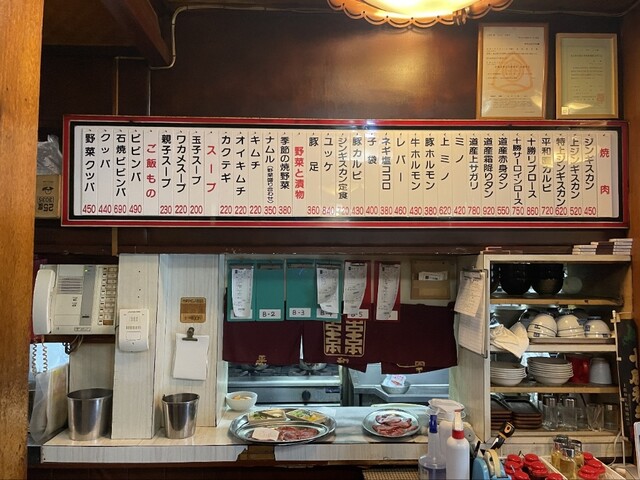 焼肉
ジンギスカン 450
上ジンギスカン 520
特上ジンギスカン 620
平和園カルビ 720
十勝リブロース 860
十勝サーロインロース 750
道産赤身タン 550
道産霜降りタン 920
道産上サガリ 780
ミノ 420
上ミノ 620
豚ホルモン 380
牛ホルモン 430
レバー 460
ネギ塩コロコロ 380
子袋 400
豚カルビ
ジンギスカン定食
ユッケ 840
豚足 360
野菜と漬物
季節の焼野菜 380
ナムル(野菜盛り合わせ) 350
キムチ 220
オイキムチ 220
カクテギ 220
スープ
玉子スープ 200
ワカメスープ 220
親子スープ 230
ご飯もの
ビビンバ 490
石焼ビビンバ 690
クッパ 440
野菜クッパ 450
B-2
B-3